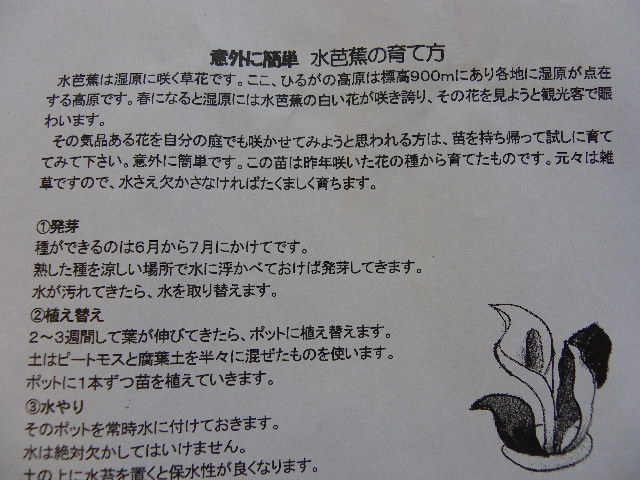 意外に簡単 水芭蕉の育て方
水芭蕉は湿原に咲く草花です。ここ、ひるがの高原は標高900mにあり各地に湿原が点在
する高原です。春になると湿原には水芭蕉の白い花が咲き誇り、その花を見ようと観光客で賑
わいます。
その気品ある花を自分の庭でも咲かせてみようと思われる方は、苗を持ち帰って試しに育て
てみて下さい。意外に簡単です。この苗は昨年咲いた花の種から育てたものです。元々は雑
草ですので、水さえ欠かさなければたくましく育ちます。
①発芽
種ができるのは6月から7月にかけてです。
熟した種を涼しい場所で水に浮かべておけば発芽してきます。
水が汚れてきたら、水を取り替えます。
②植え替え
2〜3週間して葉が伸びてきたら、ポットに植え替えます。
土はピートモスと腐葉土を半々に混ぜたものを使います。
ポットに1本ずつ苗を植えていきます。
③水やり
そのポットを常時水に付けておきます。
水は絶対欠かしてはいけません。
土の上に水苔を置くと保水性が良くなります。